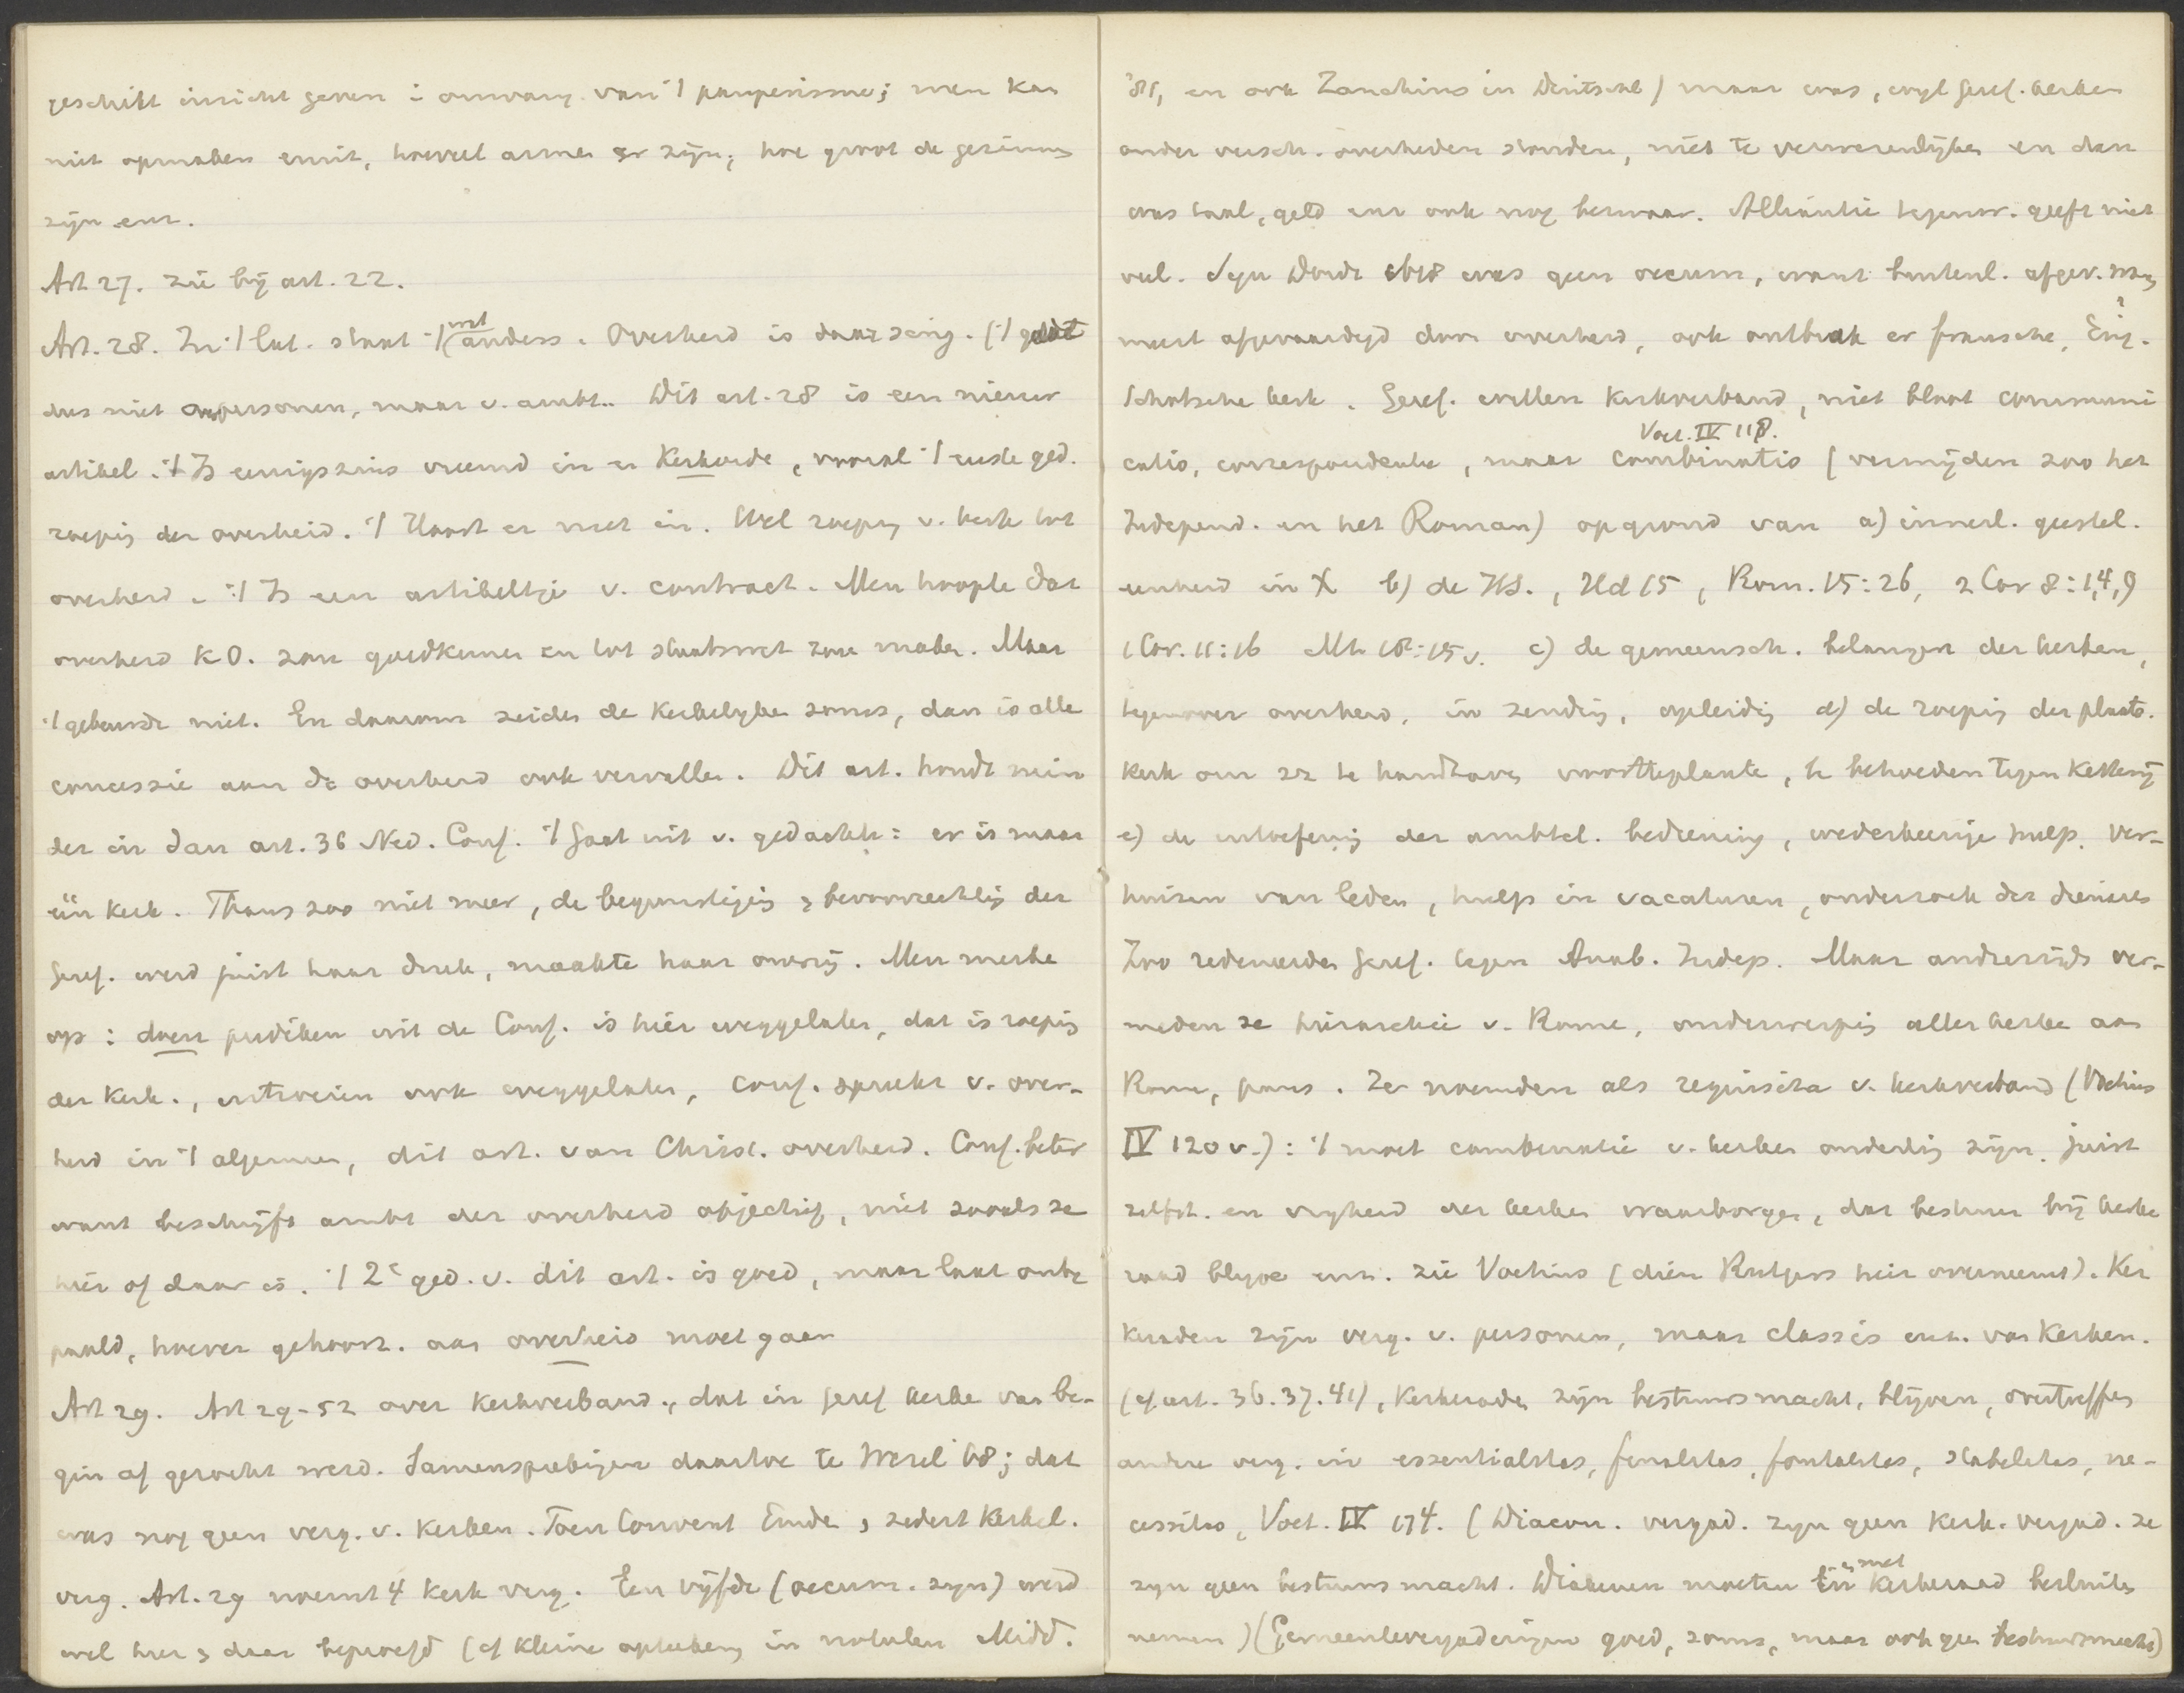 geschikt inricht geven i omvang van 't pauperisme; men kan
niet opmaken eruit, hoeveel armen er zijn, hoe groot de gezinnen
zijn enz.
Art 27. zie bij art. 22.
Art. 28. In 't lat. staat 't wel anders. Overheid is daar zeing. ('t geldt
dus niet personen, maar v. ambt.. Dit art. 28 is een nieuw
artikel. 't Is eenigszins vreemd in er Kerkorde, vooral 't eerste ged.
roeping der overheid. 't Hoort er niet in. Wel roeping v. kerk tot
overheid. 't Is een artikeltje v. contract. Men hoopte dat
overheid K.O. zou goedkeuren en tot staatswet zou maken. Maar
't gebeurde niet. En daarom zeiden de Kerkelyken soms, dan is alle
concessie aan de overheid ook vervallen. Dit art. houdt min
der in dan art. 36 Ned. Conf. 't Gaat uit v. gedachte: er is maar
één kerk. Thans zoo niet meer, de begunstiging & bevoorrechting der
Geref. werd juist haar druk, maakte haar onvrij. Men merke
op: doen prediken uit de Conf. is hier weggelaten, dat is roeping
der Kerk., uitroeien ook weggelaten, Conf. spreekt v. over-
heid in 't algemeen, dit art. van Christ. overheid. Conf. beter
want beschrijft ambt der overheid objectief, niet zooals ze
hier of daar is. 't 2e ged. v. dit art. is goed, maar laat onbe
paald, hoever gehoorz. aan overheid moet gaan
Art 29. Art 29-52 over Kerkverband., dat in geref kerke van be-
gin af gezocht werd. Samensprekingen daartoe te Wesel 68; dat
was nog geen verg. v. Kerken. Toen Convent Emde, sedert Kerkel.
verg. Art. 29 noemt 4 kerk verg. Een vijfde (oecum. syn) werd
wel hier & daar beproefd (cf kleine opteekeng in notulen Midd.
'81, en ook Zanchius in Duitschl) maar was, wyl geref. kerken
onder versch. overheden stonden, niet te verwezenlijken en dan
was taal, geld enz ook nog bezwaar. Alliantie tegenw. geeft niet
veel. Syn Dordt 1618 was geen oecum, want buitenl. afgev. waren
meest afgevaardigd door overheid, ook ontbrak er fransche, Eng.?
Schotsche kerk. Geref. willen Kerkverband, niet bloot communi
catio, correspondentie, maar combinatio (vermijden zoo het
Voet. IV 118.
Independ. en het Roman) op grond van a) innerl. geestel.
eenheid in X b) de HS., Hd 15, Rom. 15:26, 2 Cor 8:1,4,9
1 Cor. 11:16 Mt 18:15v. c) de gemeensch. belangen der kerken,
tegenover overheid, in zending, opleiding d) de roeping der plaats.
kerk om zz te handhaven voortteplanten, te behoeden tegen Ketterij
e) de uitoefening der ambtel. bediening, wederkeerige hulp. Ver-
huizen van leden, hulp in vacaturen, onderzoek der dienaren
Zoo redeneerden Geref. tegen Anab. Indep. Maar anderzijds ver-
meden ze hierarchie v. Rome, onderwerping aller kerken aan
Rome, paus. Ze noemden als requisita v. kerkverband (Voetius
IV 120 v.): 't moet combinatie v. kerken onderling zijn. juist
zelfst. en vryheid der kerken waarborgen, dat bestuur bij kerke
raad blyve enz. zie Voetius (dien Rutgers hier overneemt). Ker
keraden zijn verg. v. personen, maar classis enz. van Kerken.
(cf art. 36. 37. 41), Kerkeraden zijn bestuursmacht, blijven, overtreffen
andere verg. in essentialitas, finalitas, fontalitas, stabilitas, ne-
cessitas, Voet. IV 174. (Diacon. vergad. zyn geen Kerk. vergad. ze
zyn geen bestuursmacht. Diakenen moeten in & met Kerkeraad besluiten
nemen) (Gemeentevergaderingen goed, soms, maar ook geen bestuursmacht)